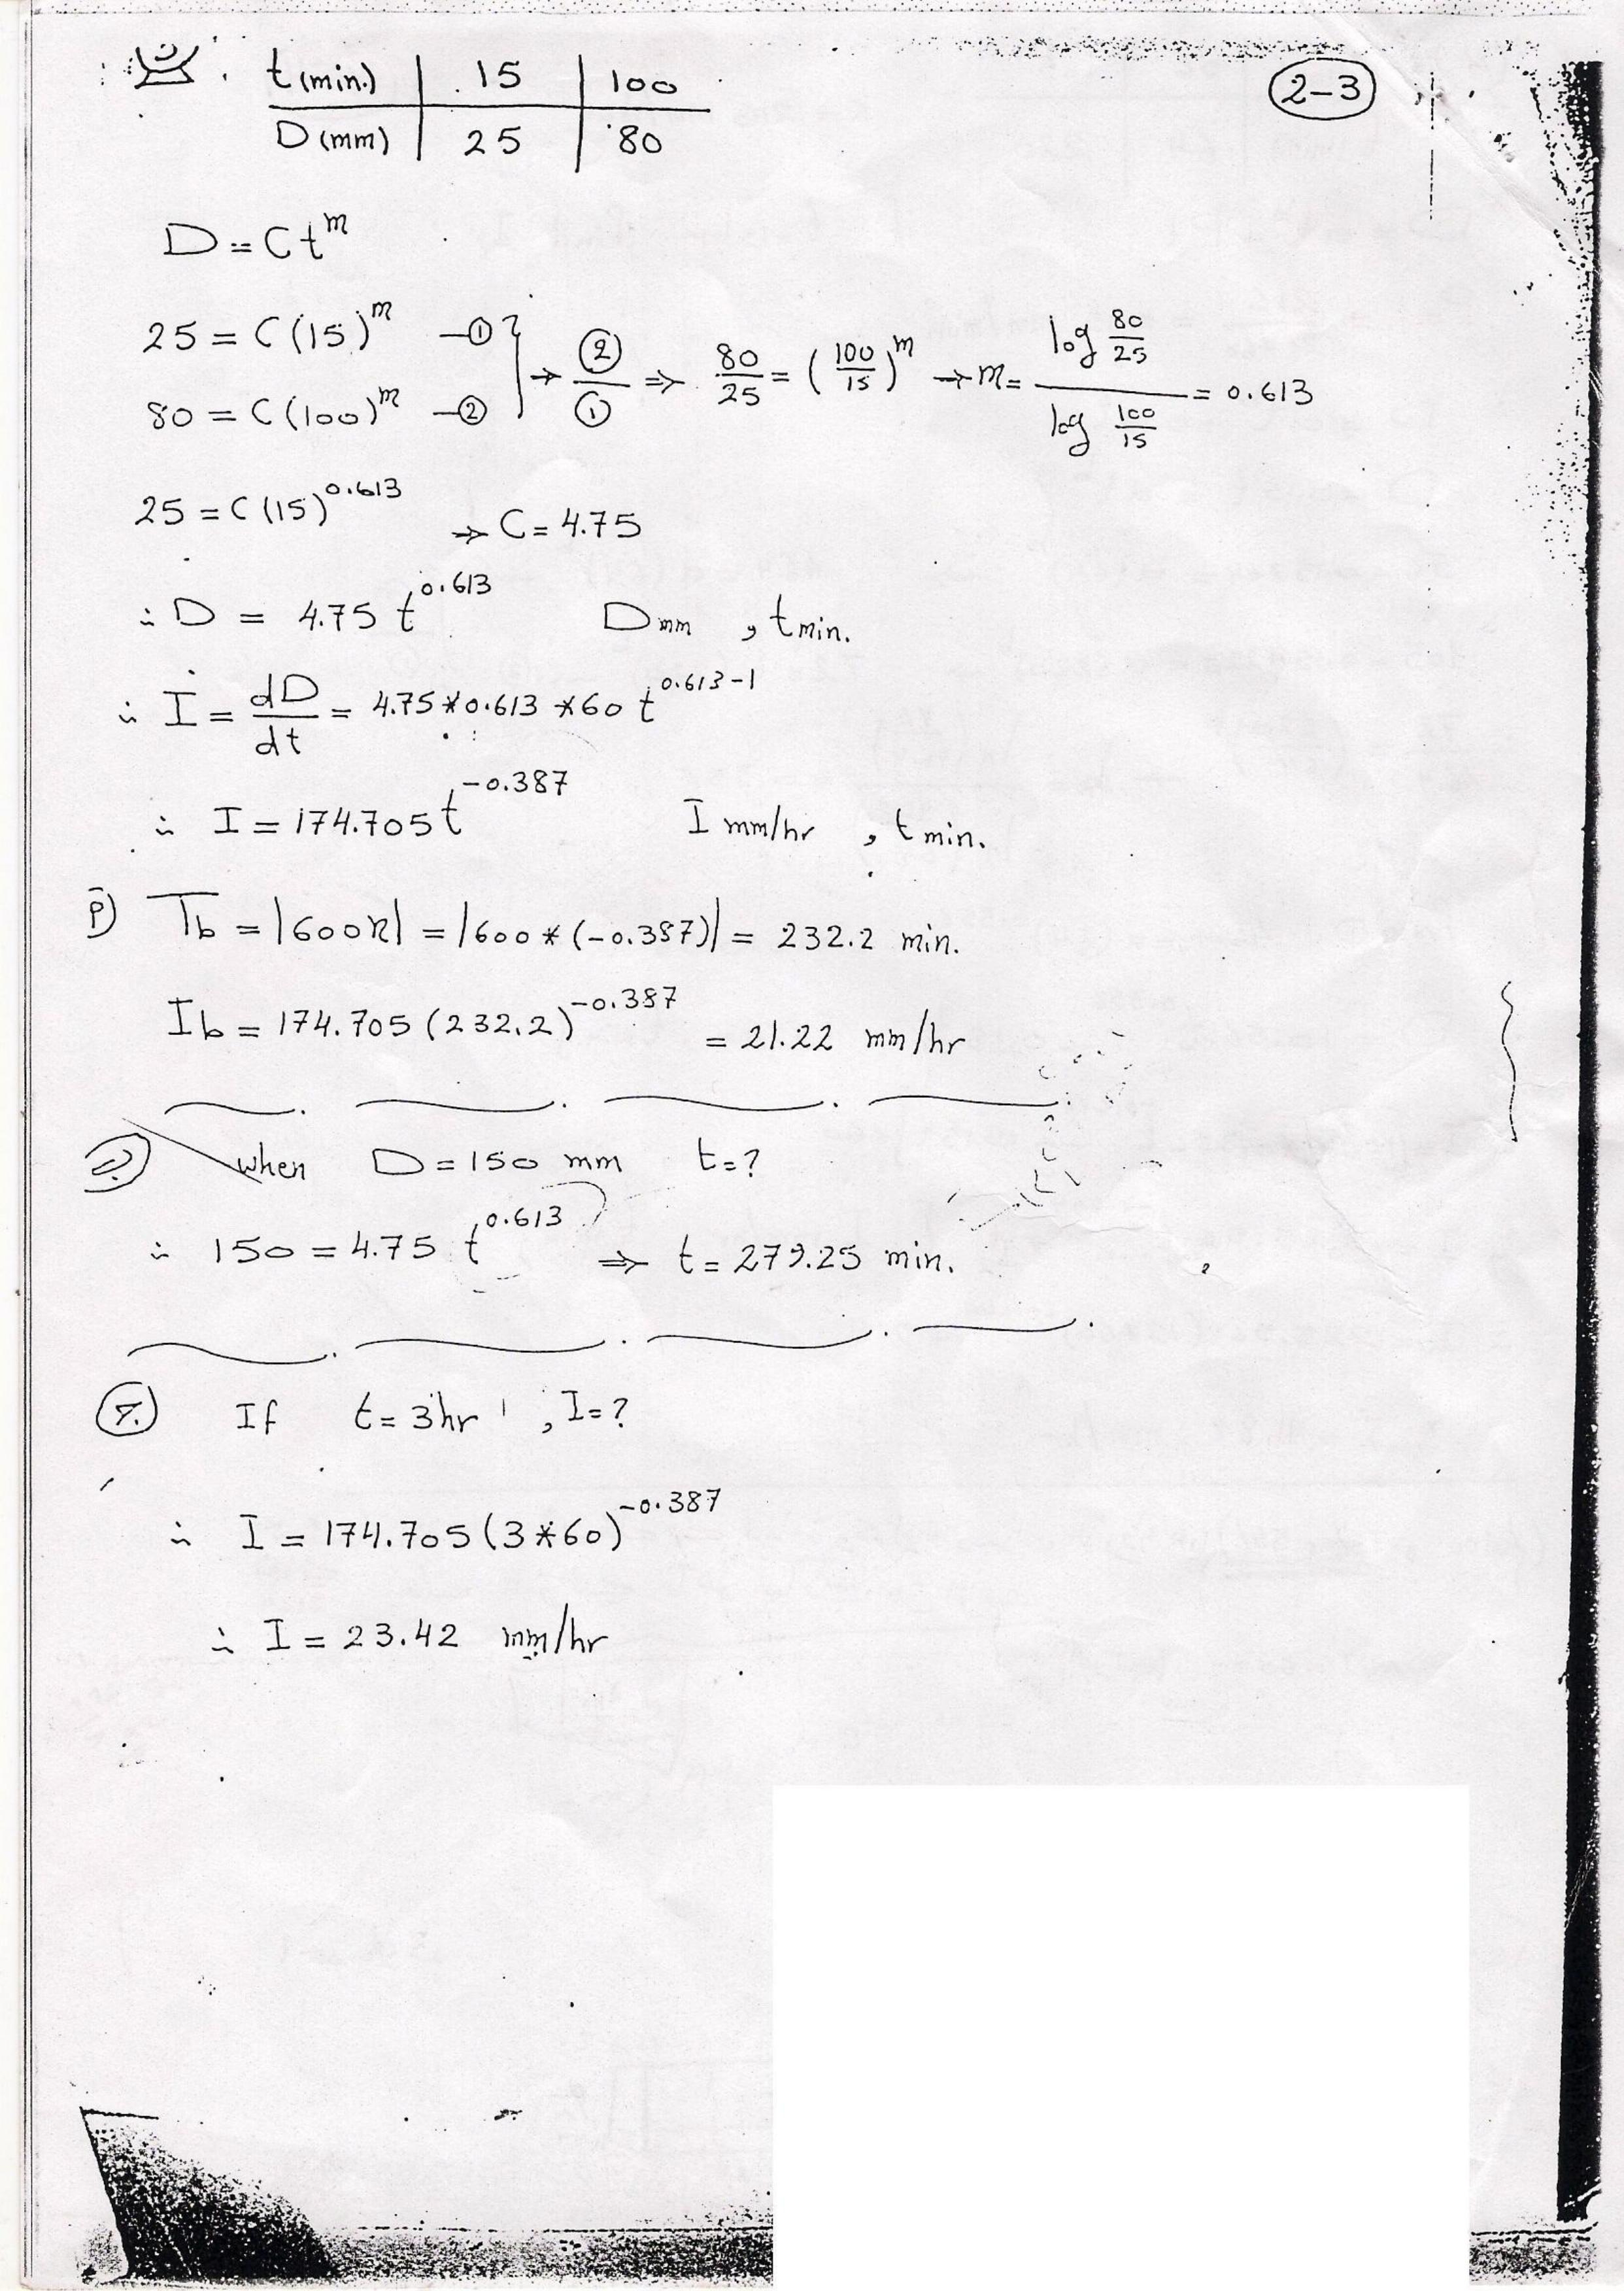 t (min.) | 15 | 100
D (mm) | 25 | 80
2-3
D = C t^m
25 = C (15)^m —①
80 = C (100)^m —②
→ ②/① ⇒ 80/25 = (100/15)^m → m = log 80/25 / log 100/15 = 0.613
25 = C (15)^0.613 → C = 4.75
∴ D = 4.75 t^0.613 D mm , t min.
∴ I = dD/dt = 4.75 * 0.613 * 60 t^0.613-1
∴ I = 174.705 t^-0.387 I mm/hr , t min.
Tb = |600n| = |600 * (-0.387)| = 232.2 min.
Ib = 174.705 (232.2)^-0.387 = 21.22 mm/hr
when D = 150 mm t = ?
∴ 150 = 4.75 t^0.613 ⇒ t = 279.25 min.
If t = 3 hr , I = ?
∴ I = 174.705 (3 * 60)^-0.387
∴ I = 23.42 mm/hr